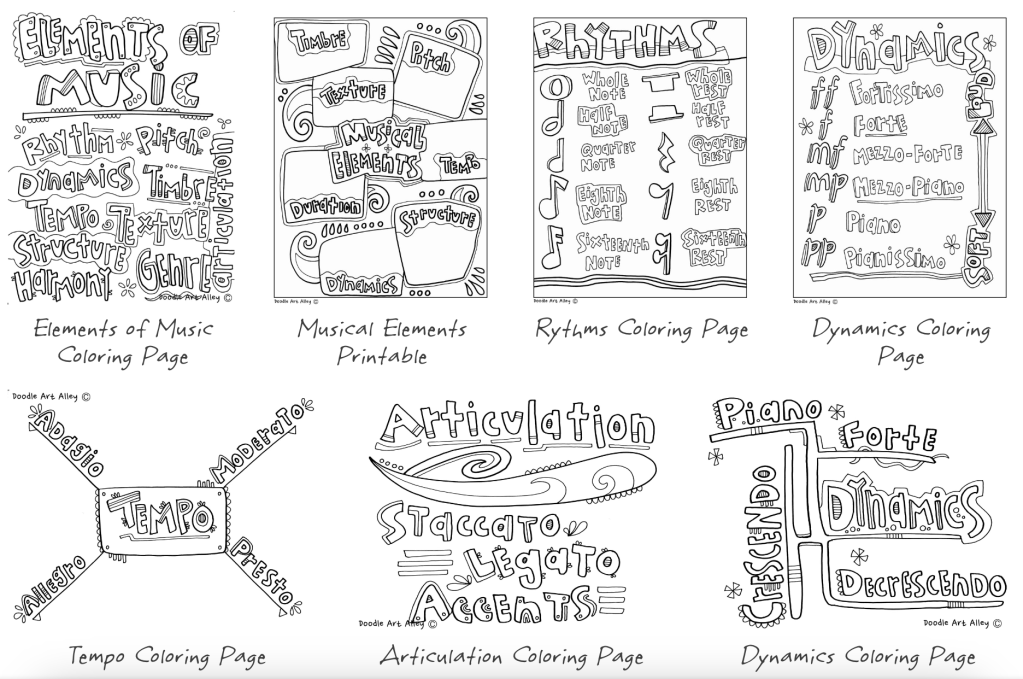 ELEMENTS OF
MUSIC
Rhythm Pitch
Dynamics Timbre
Tempo Texture
Structure
Harmony Genre
articulation
Doodle Art Alley ©
Elements of Music
Coloring Page
Timbre
Pitch
Texture
Musical
Elements
Tempo
Duration
Structure
Dynamics
Doodle Art Alley ©
Musical Elements
Printable
RHYTHMS
Whole Note
Whole Rest
Half Note
Half Rest
Quarter Note
Quarter Rest
Eighth Note
Eighth Rest
Sixteenth Note
Sixteenth Rest
Doodle Art Alley ©
Rythms Coloring Page
Dynamics
ff Fortissimo
f Forte
mf Mezzo-Forte
mp Mezzo-Piano
p Piano
pp Pianissimo
Loud
Soft
Doodle Art Alley ©
Dynamics Coloring
Page
Doodle Art Alley ©
Adagio
Moderato
Tempo
Allegro
Presto
Tempo Coloring Page
Articulation
Staccato
Legato
Accents
Doodle Art Alley ©
Articulation Coloring Page
Piano
Forte
Crescendo
Dynamics
Decrescendo
Doodle Art Alley ©
Dynamics Coloring Page